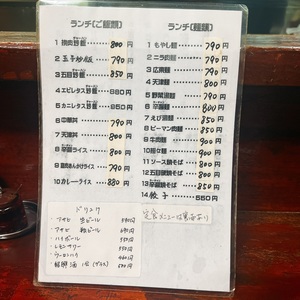 ランチ(ご飯類)
1 焼肉炒飯 800円
2 玉子炒飯 790円
3 五目炒飯 850円
4 エビレタス炒飯 880円
5 カニレタス炒飯 950円
6 中華丼 790円
7 天津丼 800円
8 辛麺ライス 800円
790円
10 カレーライス 880円
ランチ(麺類)
1 もやし麺 790円
2 ニラ肉麺 790円
3 広東麺 790円
4 天津麺 800円
5 野菜湯麺 790円
6 800円
7 えび湯麺 850円
8 ピーマン肉麺 850円
9 牛肉麺 900円
10 900円
11 ソース焼そば 800円
12 五目焼そば 800円
13 焼そば 850円
14 餃子 550円
ドリンク
アサヒ 生ビール
アサヒ 瓶ビール
ハイボール 550円
レモンサワー 550円
ウーロンハイ
紹興酒 1合(グラス)
定食メニューは裏面あり